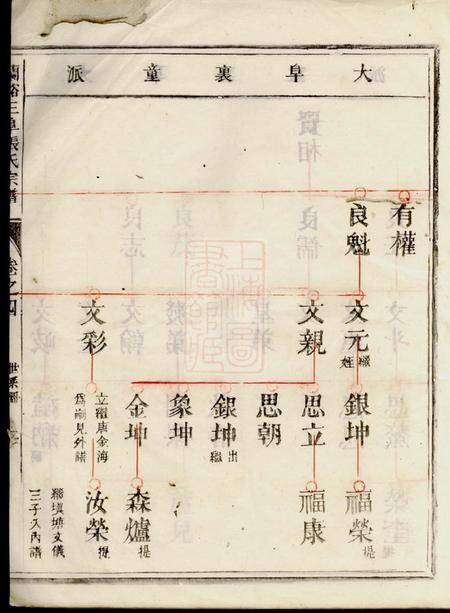 大阜裏童派
有權
良魁
文元
繼姪
銀坤
福榮
提
文親
思立
福康
思朝
銀坤
出繼
象坤
金坤
森爐
提
文彩
立繼唐金海
為嗣見外譜
汝榮
提
三子入內譜
張氏宗譜
卷之四
世系圖
上海圖書館